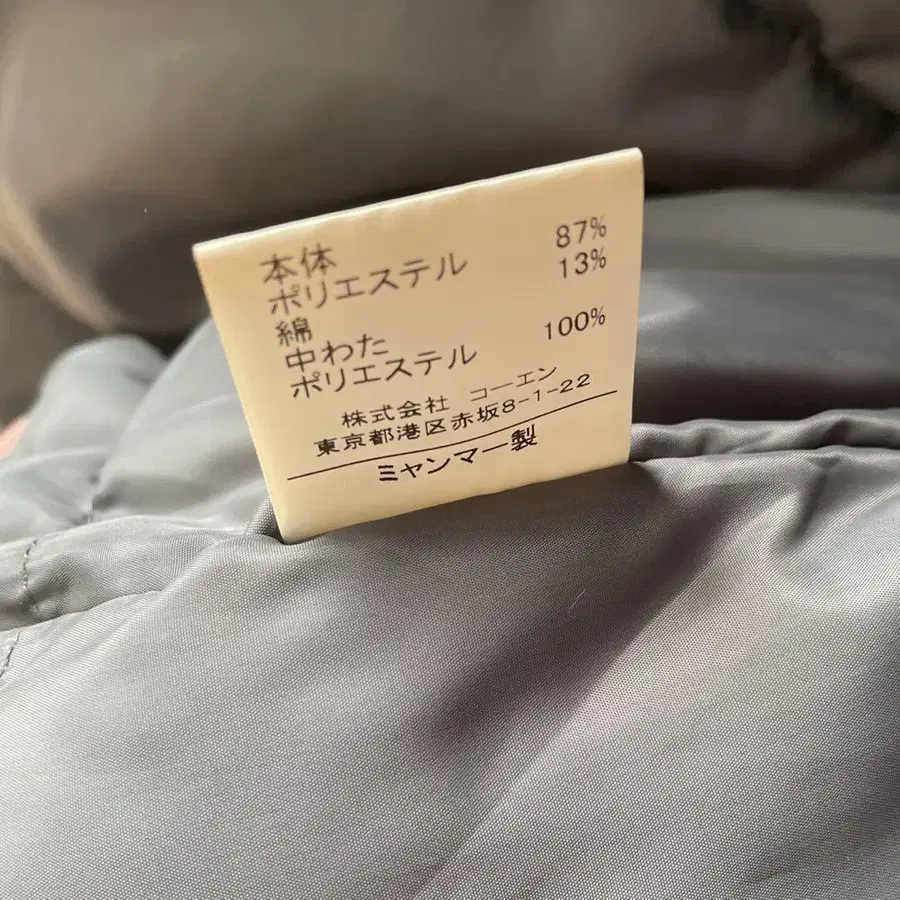 本体
ポリエステル 87%
綿 13%
中わた
ポリエステル 100%
株式会社 コーエン
東京都港区赤坂8-1-22
ミャンマー製